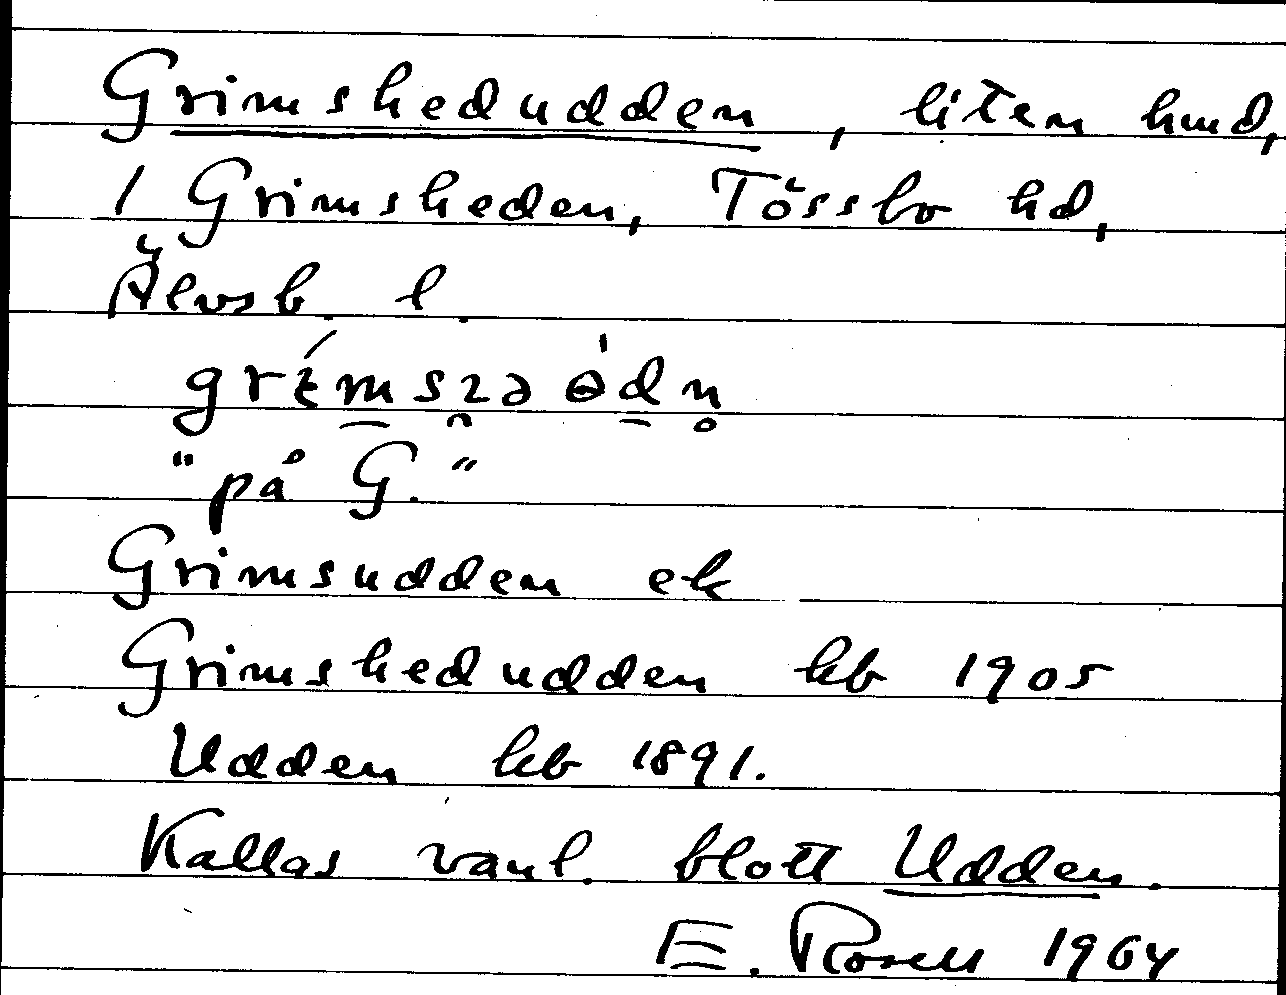 Grimshedudden, liten hmd,
1 Grimsheden, Tössbo hd,
Älvsb. l.
"på G."
Grimsudden ek
Grimshedudden kb 1905
Udden kb 1891.
Kallas vanl. blott Udden.
E. Rosell 1964